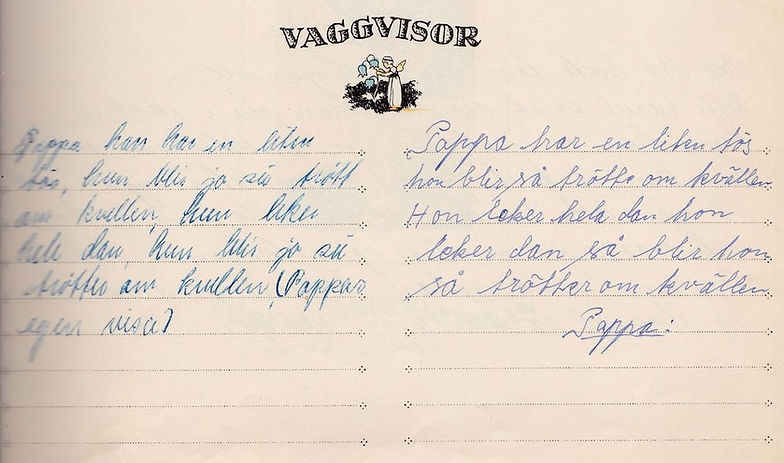 VAGGVISOR
Pappa han har en liten
tös, hun blir jo så trött
om kvellen, hun leker
hele dan, hun blir jo så
trötter om kvellen (Pappas
egen visa)
Pappa har en liten tös
hon blir så trötte om kvällen
Hon leker hela dan hon
leker dan så blir hon
så trötter om kvällen
Pappa: